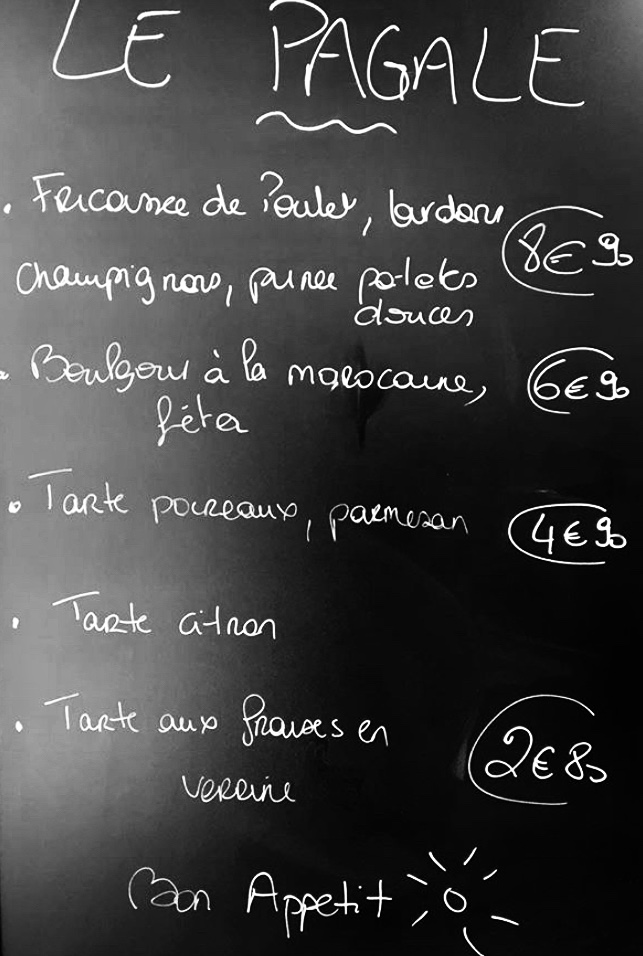 LE PAGALE
• Fricassee de Poulet, lardons 8€90
champignons, puree patates
douces
• Boulgour à la marocaine, 6€90
féta
• Tarte poireaux, parmesan 4€90
• Tarte citron
• Tarte aux fraises en 2€80
verrine
Bon Appetit